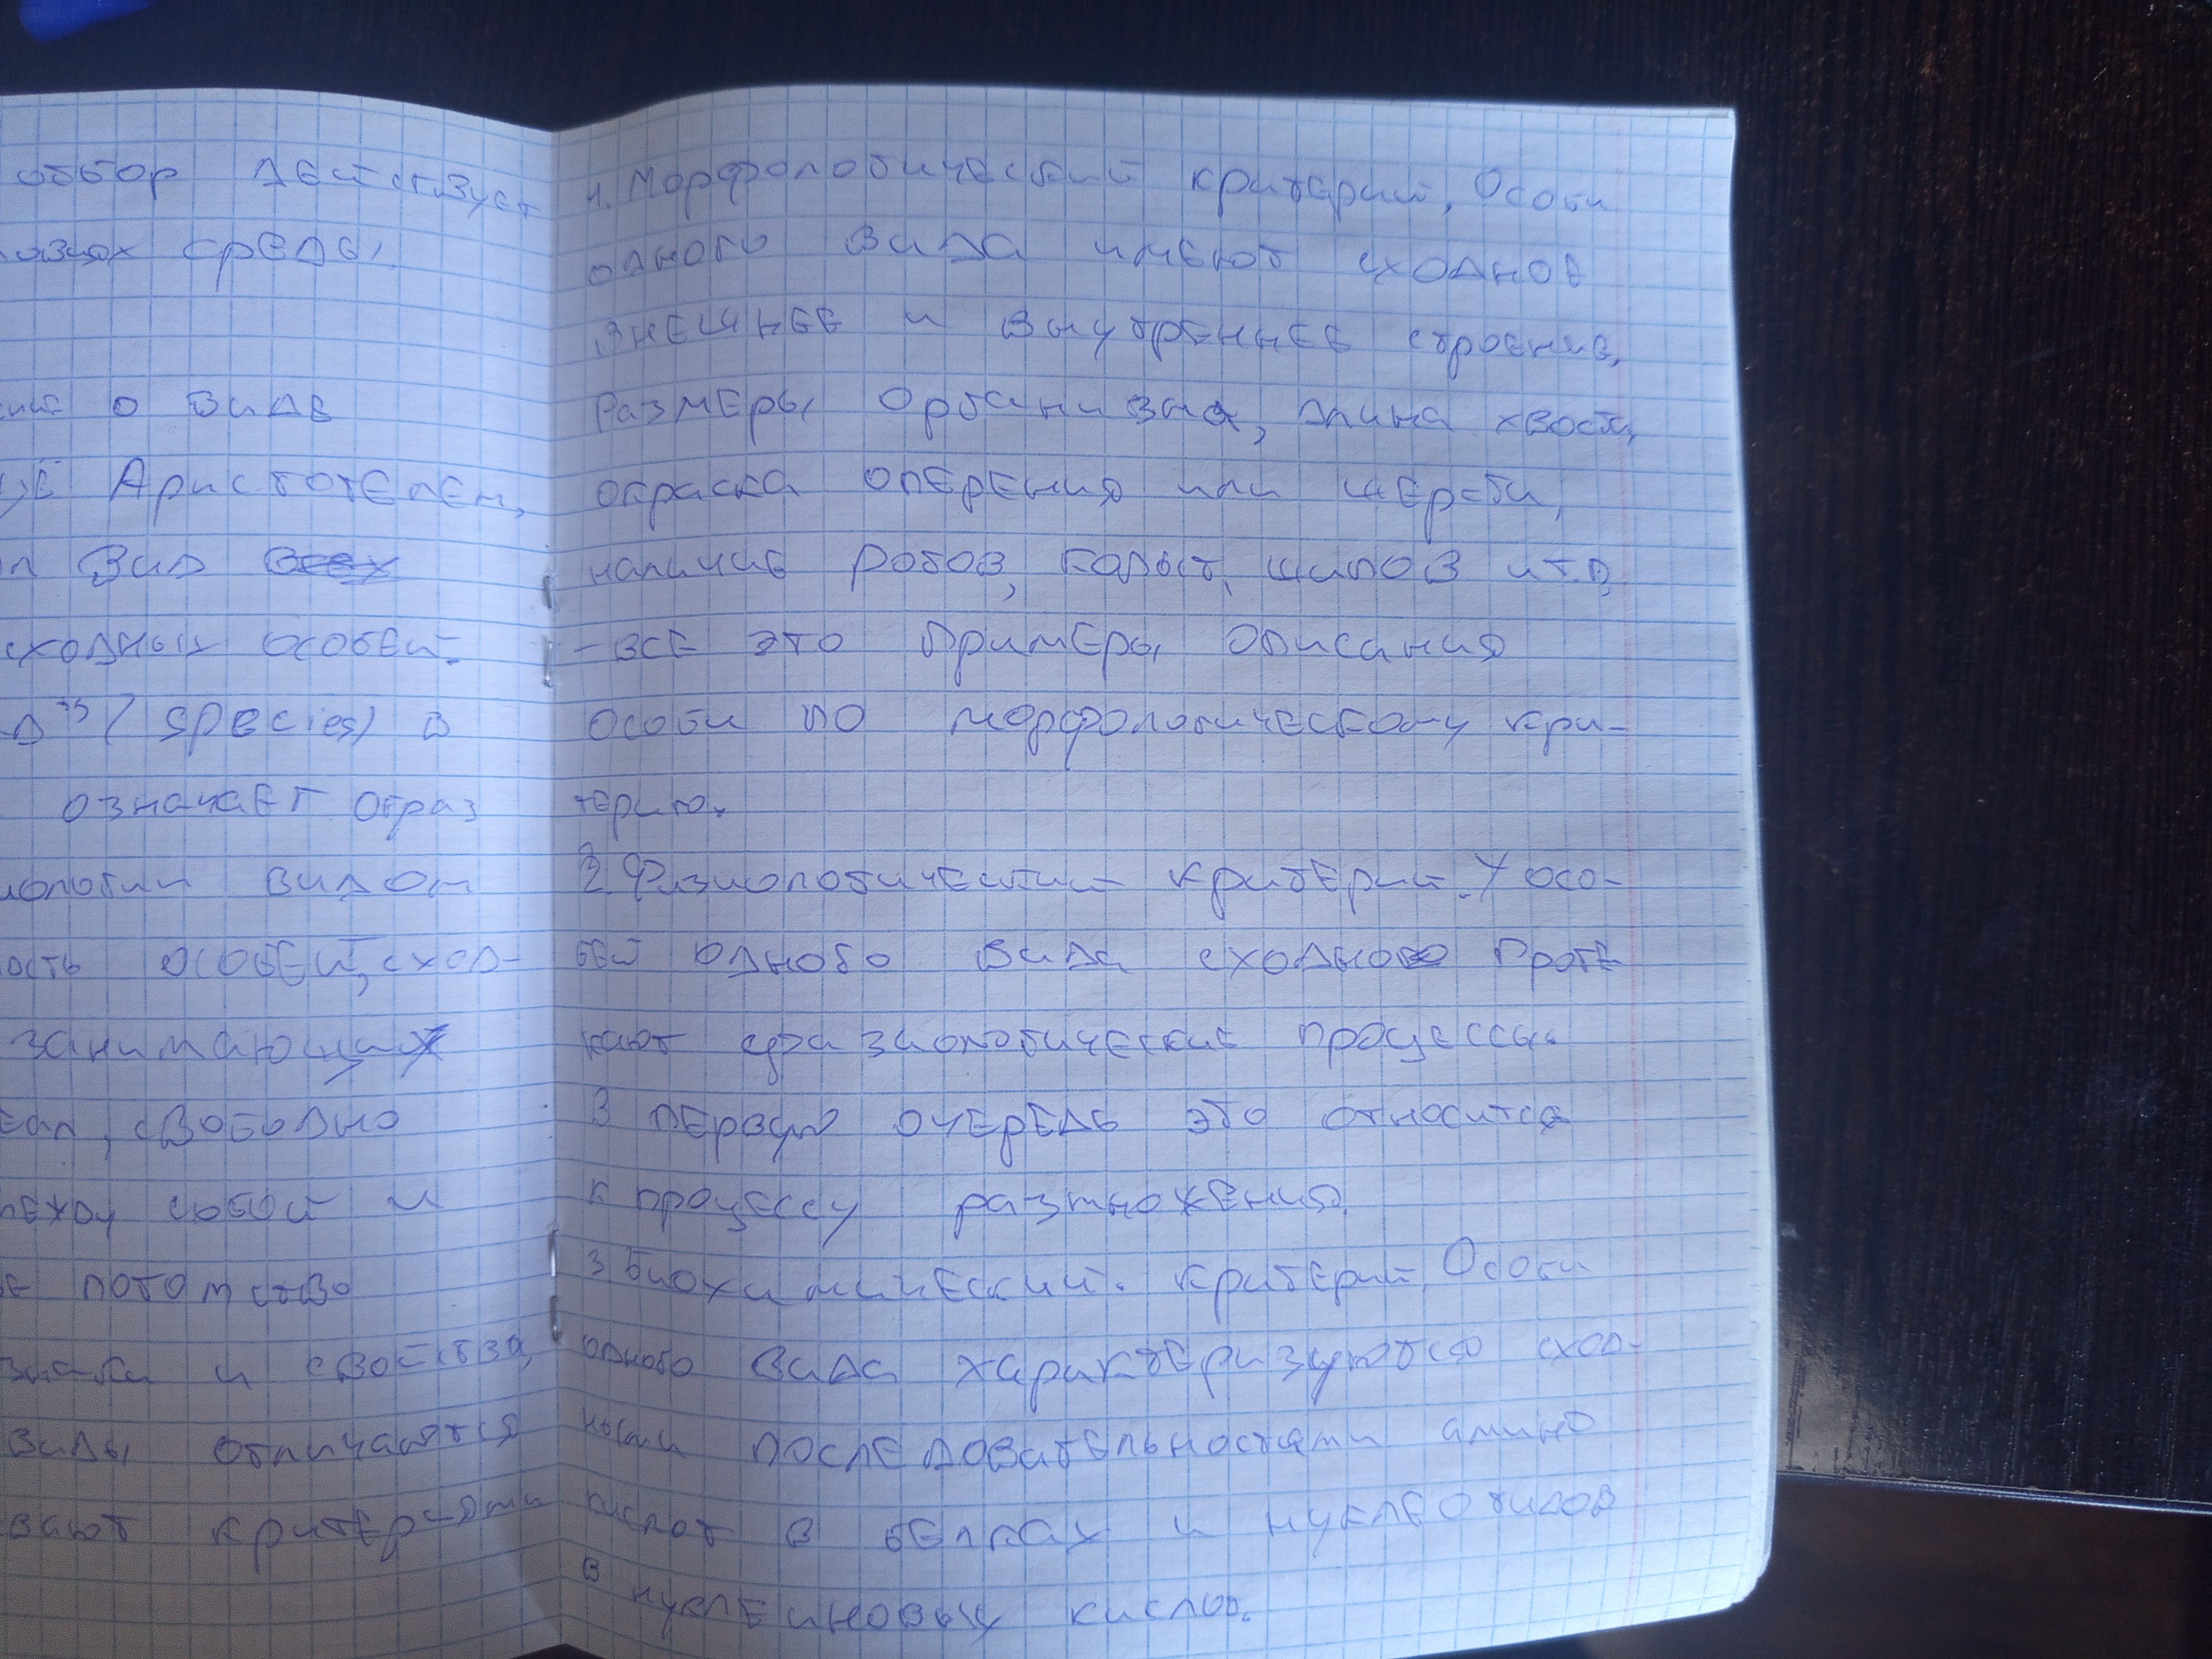 отбор действует
средь,
о виде
Аристотелем,
вид всех
сходных особей.
(species) в
означает образ
видом
особей, сход-
занимающих
свободно
между собой и
потомство
и свойства,
виды отличаются
критериями
1. Морфологический критерий, Особи
одного вида имеют сходное
внешнее и внутреннее строение,
Размеры организма, длина хвоста,
окраска оперения или шерсти,
наличие рогов, копыт, шипов и т.д,
- все это примеры описания
особи по морфологическому кри-
терию.
2. Физиологический критерий. У осо-
бей одного вида сходно проте
кают физиологические процессы.
В первую очередь это относится
к процессу размножения.
3 биохимический. критерий, Особи
одного вида характеризуются сход-
ными последовательностями амино
кислот в белках и нуклеотидов
в нуклеиновых кислот.